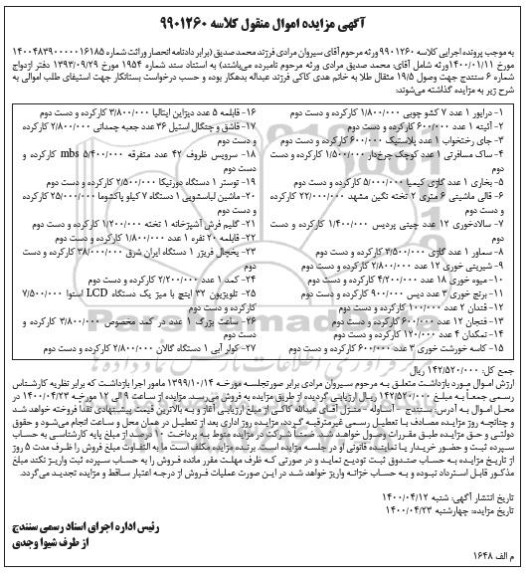 آگهی مزایده اموال منقول کلاسه ۹۹۰۱۲۶۰
به موجب پرونده اجرایی کلاسه ۹۹۰۱۲۶۰ ورثه مرحوم آقای سیروان مرادی فرزند محمد صدیق (برابر دادنامه انحصار وراثت شماره ۱۴۰۰۴۸۳۹۰۰۰۰۰۱۶۱۸۵
مورخ ۱۴۰۰/۰۱/۱۱ ورثه شامل آقای: محمد صدیق مرادی ورثه مرحوم نامبرده می‌باشند) به استناد سند شماره ۱۹۵۴ مورخ ۱۳۹۳/۰۹/۲۹ دفتر ازدواج
شماره ۶ سنندج جهت وصول ۱۹/۵ مثقال طلا به خانم هدی کاکی فرزند عبداله بدهکار بوده و حسب درخواست بستانکار جهت استیفای طلب اموالی به
شرح زیر به مزایده گذاشته می‌شوند:
۱- دراور ۱ عدد ۷ کشو چوبی ۱/۸۰۰/۰۰۰ کارکرده و دست دوم
۲- آئینه ۱ عدد ۶۰۰/۰۰۰ کارکرده و دست دوم
۳- جای رختخواب ۱ عدد پلاستیک ۶۰۰/۰۰۰ کارکرده و دست دوم
۴- ساک مسافرتی ۱ عدد کوچک چرخدار ۱/۵۰۰/۰۰۰ کارکرده و دست
دوم
۵- بخاری ۱ عدد گازی کیمیا ۵/۰۰۰/۰۰۰ کارکرده و دست دوم
۶- قالی ماشینی ۶ متری ۲ تخته نگین مشهد ۲۲/۰۰۰/۰۰۰ کارکرده
و دست دوم
۷- سالادخوری ۱۲ عدد چینی پردیس ۱/۴۰۰/۰۰۰ کارکرده و دست
دوم
۸- سماور ۱ عدد گازی ۳/۵۰۰/۰۰۰ کارکرده و دست دوم
۹- شیرینی خوری ۱۲ عدد ۲/۸۰۰/۰۰۰ کارکرده و دست دوم
۱۰- میوه خوری ۱۸ عدد ۴/۲۰۰/۰۰۰ کارکرده و دست دوم
۱۱- برنج خوری ۳ عدد دیس ۹۰۰/۰۰۰ کارکرده و دست دوم
۱۲- قندان ۲ عدد ۱۰۰/۰۰۰ کارکرده و دست دوم
۱۳- فنجان ۱۲ عدد ۶۰۰/۰۰۰ کارکرده و دست دوم
۱۴- نمکدان ۴ عدد ۱۲۰/۰۰۰ کارکرده و دست دوم
۱۵- کاسه خورشت خوری ۳ عدد ۶۰۰/۰۰۰ کارکرده و دست دوم
۱۶- قابلمه ۵ عدد دیزاین ایتالیا ۳/۸۰۰/۰۰۰ کارکرده و دست دوم
۱۷- قاشق و چنگال استیل ۳۶ عدد جعبه چمدانی ۲/۸۰۰/۰۰۰ کارکرده
و دست دوم
۱۸- سرویس ظروف ۴۲ عدد متفرقه mbs ۵/۴۰۰/۰۰۰ کارکرده و
دست دوم
۱۹- توستر ۱ دستگاه دورتیکا ۲/۵۰۰/۰۰۰ کارکرده و دست دوم
۲۰- ماشین لباسشویی ۱ دستگاه ۷ کیلو پاکشوما ۲۵/۰۰۰/۰۰۰ کارکرده
و دست دوم
۲۱- گلیم فرش آشپزخانه ۱ تخته ۱/۲۰۰/۰۰۰ کارکرده و دست دوم
۲۲- قابلمه ۲۰ نفره ۱ عدد ۱/۸۰۰/۰۰۰ کارکرده و دست دوم
۲۳- یخچال فریزر ۱ دستگاه ایران شرق ۳۸/۰۰۰/۰۰۰ کارکرده و دست
دوم
۲۴- کمد ۱ عدد ۲/۲۰۰/۰۰۰ کارکرده و دست دوم
۲۵- تلویزیون ۳۲ اینچ با میز یک دستگاه LCD اسنوا ۷/۵۰۰/۰۰۰
کارکرده و دست دوم
۲۶- ساعت بزرگ ۱ عدد در کمد مخصوص ۳/۸۰۰/۰۰۰ کارکرده و
دست دوم
۲۷- کولر آبی ۱ دستگاه گالان ۲/۸۰۰/۰۰۰ کارکرده و دست دوم
جمع کل: ۱۴۲/۵۲۰/۰۰۰ ریال
ارزش اموال مورد بازداشت متعلق به مرحوم سیروان مرادی برابر صورتجلسه مورخه ۱۳۹۹/۱۰/۱۴ مامور اجرا بازداشت که برابر نظریه کارشناس
رسمی جمعاً به مبلغ ۱۴۲/۵۲۰/۰۰۰ ریال ارزیابی گردیده از طریق مزایده به فروش می‌رسد. مزایده از ساعت ۹ الی ۱۲ مورخه ۱۴۰۰/۰۴/۲۳ در
محل اموال به آدرس: سنندج - آساوله - منزل آقای عبدالله کاکی از مبلغ ارزیابی آغاز و به بالاترین قیمت پیشنهادی نقداً فروخته خواهد شد
و چنانچه روز مزایده مصادف با تعطیل رسمی غیرمترقبه گردد، مزایده روز اداری بعد از تعطیل در همان محل و ساعت انجام می‌شود و حقوق
دولتی و حق مزایده طبق مقررات وصول خواهد شد ضمناً شرکت در مزایده منوط به پرداخت ۱۰ درصد از مبلغ پایه کارشناسی به حساب
سپرده ثبت و حضور خریدار یا نماینده قانونی او در جلسه مزایده است. برنده مزایده مکلف است ما به التفاوت مبلغ فروش را ظرف مدت ۵ روز
از تاریخ مزایده به حساب صندوق ثبت تودیع نماید و در صورتی که ظرف مهلت مقرر مانده فروش را به حساب سپرده ثبت واریز نکند مبلغ
مذکور قابل استرداد نبوده و به حساب خزانه واریز خواهد شد. در این صورت عملیات فروش از درجه اعتبار ساقط و مزایده تجدید می‌گردد.
تاریخ انتشار آگهی: شنبه ۱۴۰۰/۰۴/۱۲
تاریخ مزایده: چهارشنبه ۱۴۰۰/۰۴/۲۳
رئیس اداره اجرای اسناد رسمی سنندج
از طرف شیوا وجدی
م الف ۱۶۴۸